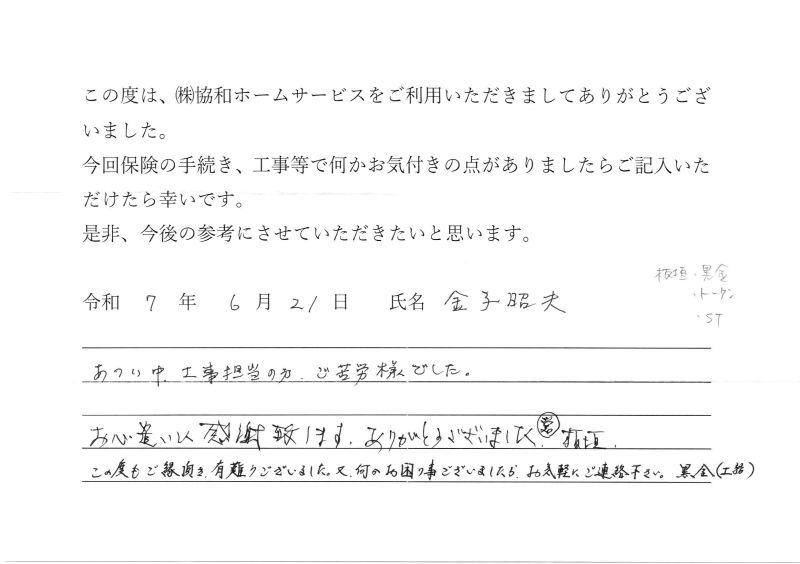 この度は、㈱協和ホームサービスをご利用いただきましてありがとうござ
いました。
今回保険の手続き、工事等で何かお気付きの点がありましたらご記入いた
だけたら幸いです。
是非、今後の参考にさせていただきたいと思います。
板垣・黒金
・トークン
・ST
令和 7 年 6 月 21 日 氏名 金子昭夫
あつい中、工事担当の方、ご苦労様でした。
お心遣いに感謝致します。ありがとうございました。板垣.
この度もご縁頂き、有難うございました。又、何かお困り事ございましたら、お気軽にご連絡下さい。黒金(工務)